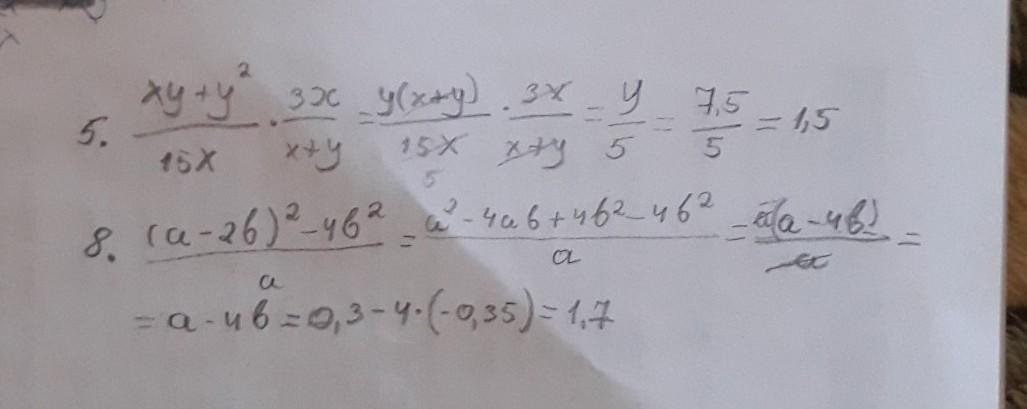 5. (xy+y²)/(15x) · (3x)/(x+y) = (y(x+y))/(15x) · (3x)/(x+y) = y/5 = 7,5/5 = 1,5
5
8. ((a-2b)²-4b²)/a = (a²-4ab+4b²-4b²)/a = (a(a-4b))/a =
= a-4b = 0,3-4·(-0,35) = 1,7